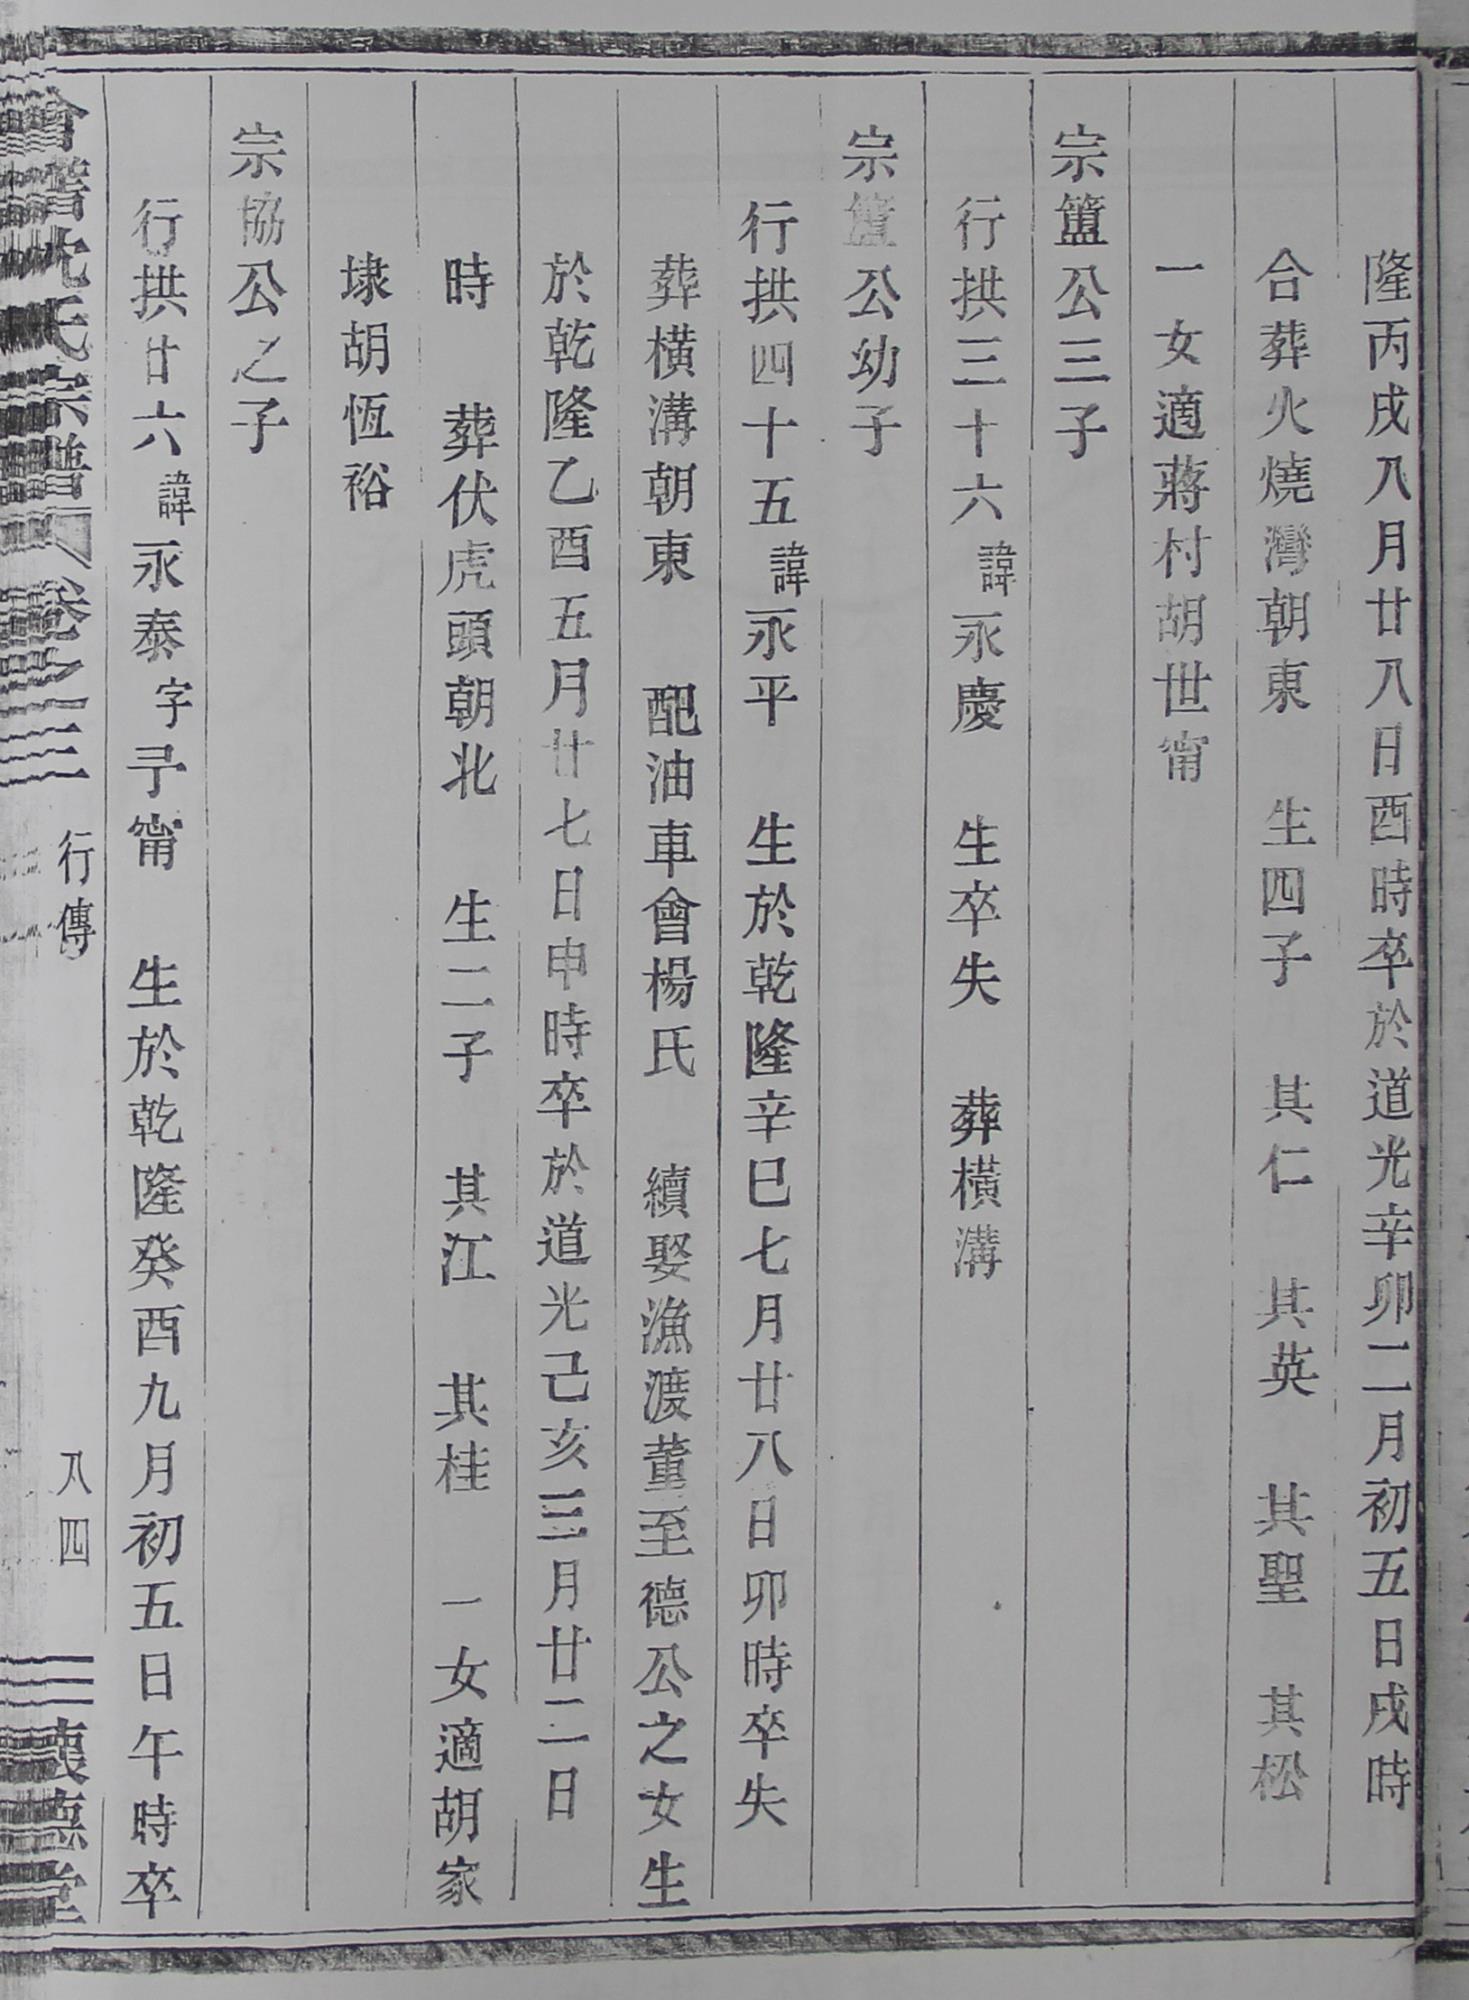 隆丙戌八月廿八日酉時卒於道光辛卯二月初五日戌時
合葬火燒灣朝東　生四子　其仁　其英　其聖　其松
一女適蔣村胡世甯
宗簠公三子
行拱三十六諱永慶　生卒失　葬橫溝
宗簠公幼子
行拱四十五諱永平　生於乾隆辛巳七月廿八日卯時卒失
葬橫溝朝東　配油車會楊氏　續娶漁渡董至德公之女生
於乾隆乙酉五月廿七日申時卒於道光己亥三月廿二日
時　葬伏虎頭朝北　生二子　其江　其桂　一女適胡家
埭胡恆裕
宗協公之子
行拱廿六諱永泰字予甯　生於乾隆癸酉九月初五日午時卒
會稽沈氏宗譜　卷之三　行傳　八四　懷德堂